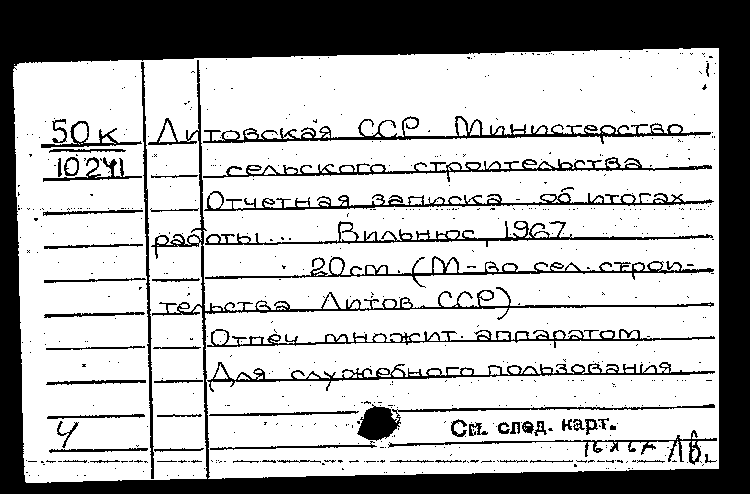 50к Литовская ССР. Министерство
10241 сельского строительства.
Отчетная записка об итогах
работы... Вильнюс, 1967.
20 см. (М-во сел. строи-
тельства Литов. ССР)
Отпеч. множит. аппаратом.
Для служебного пользования.
Ч
См. след. карт.